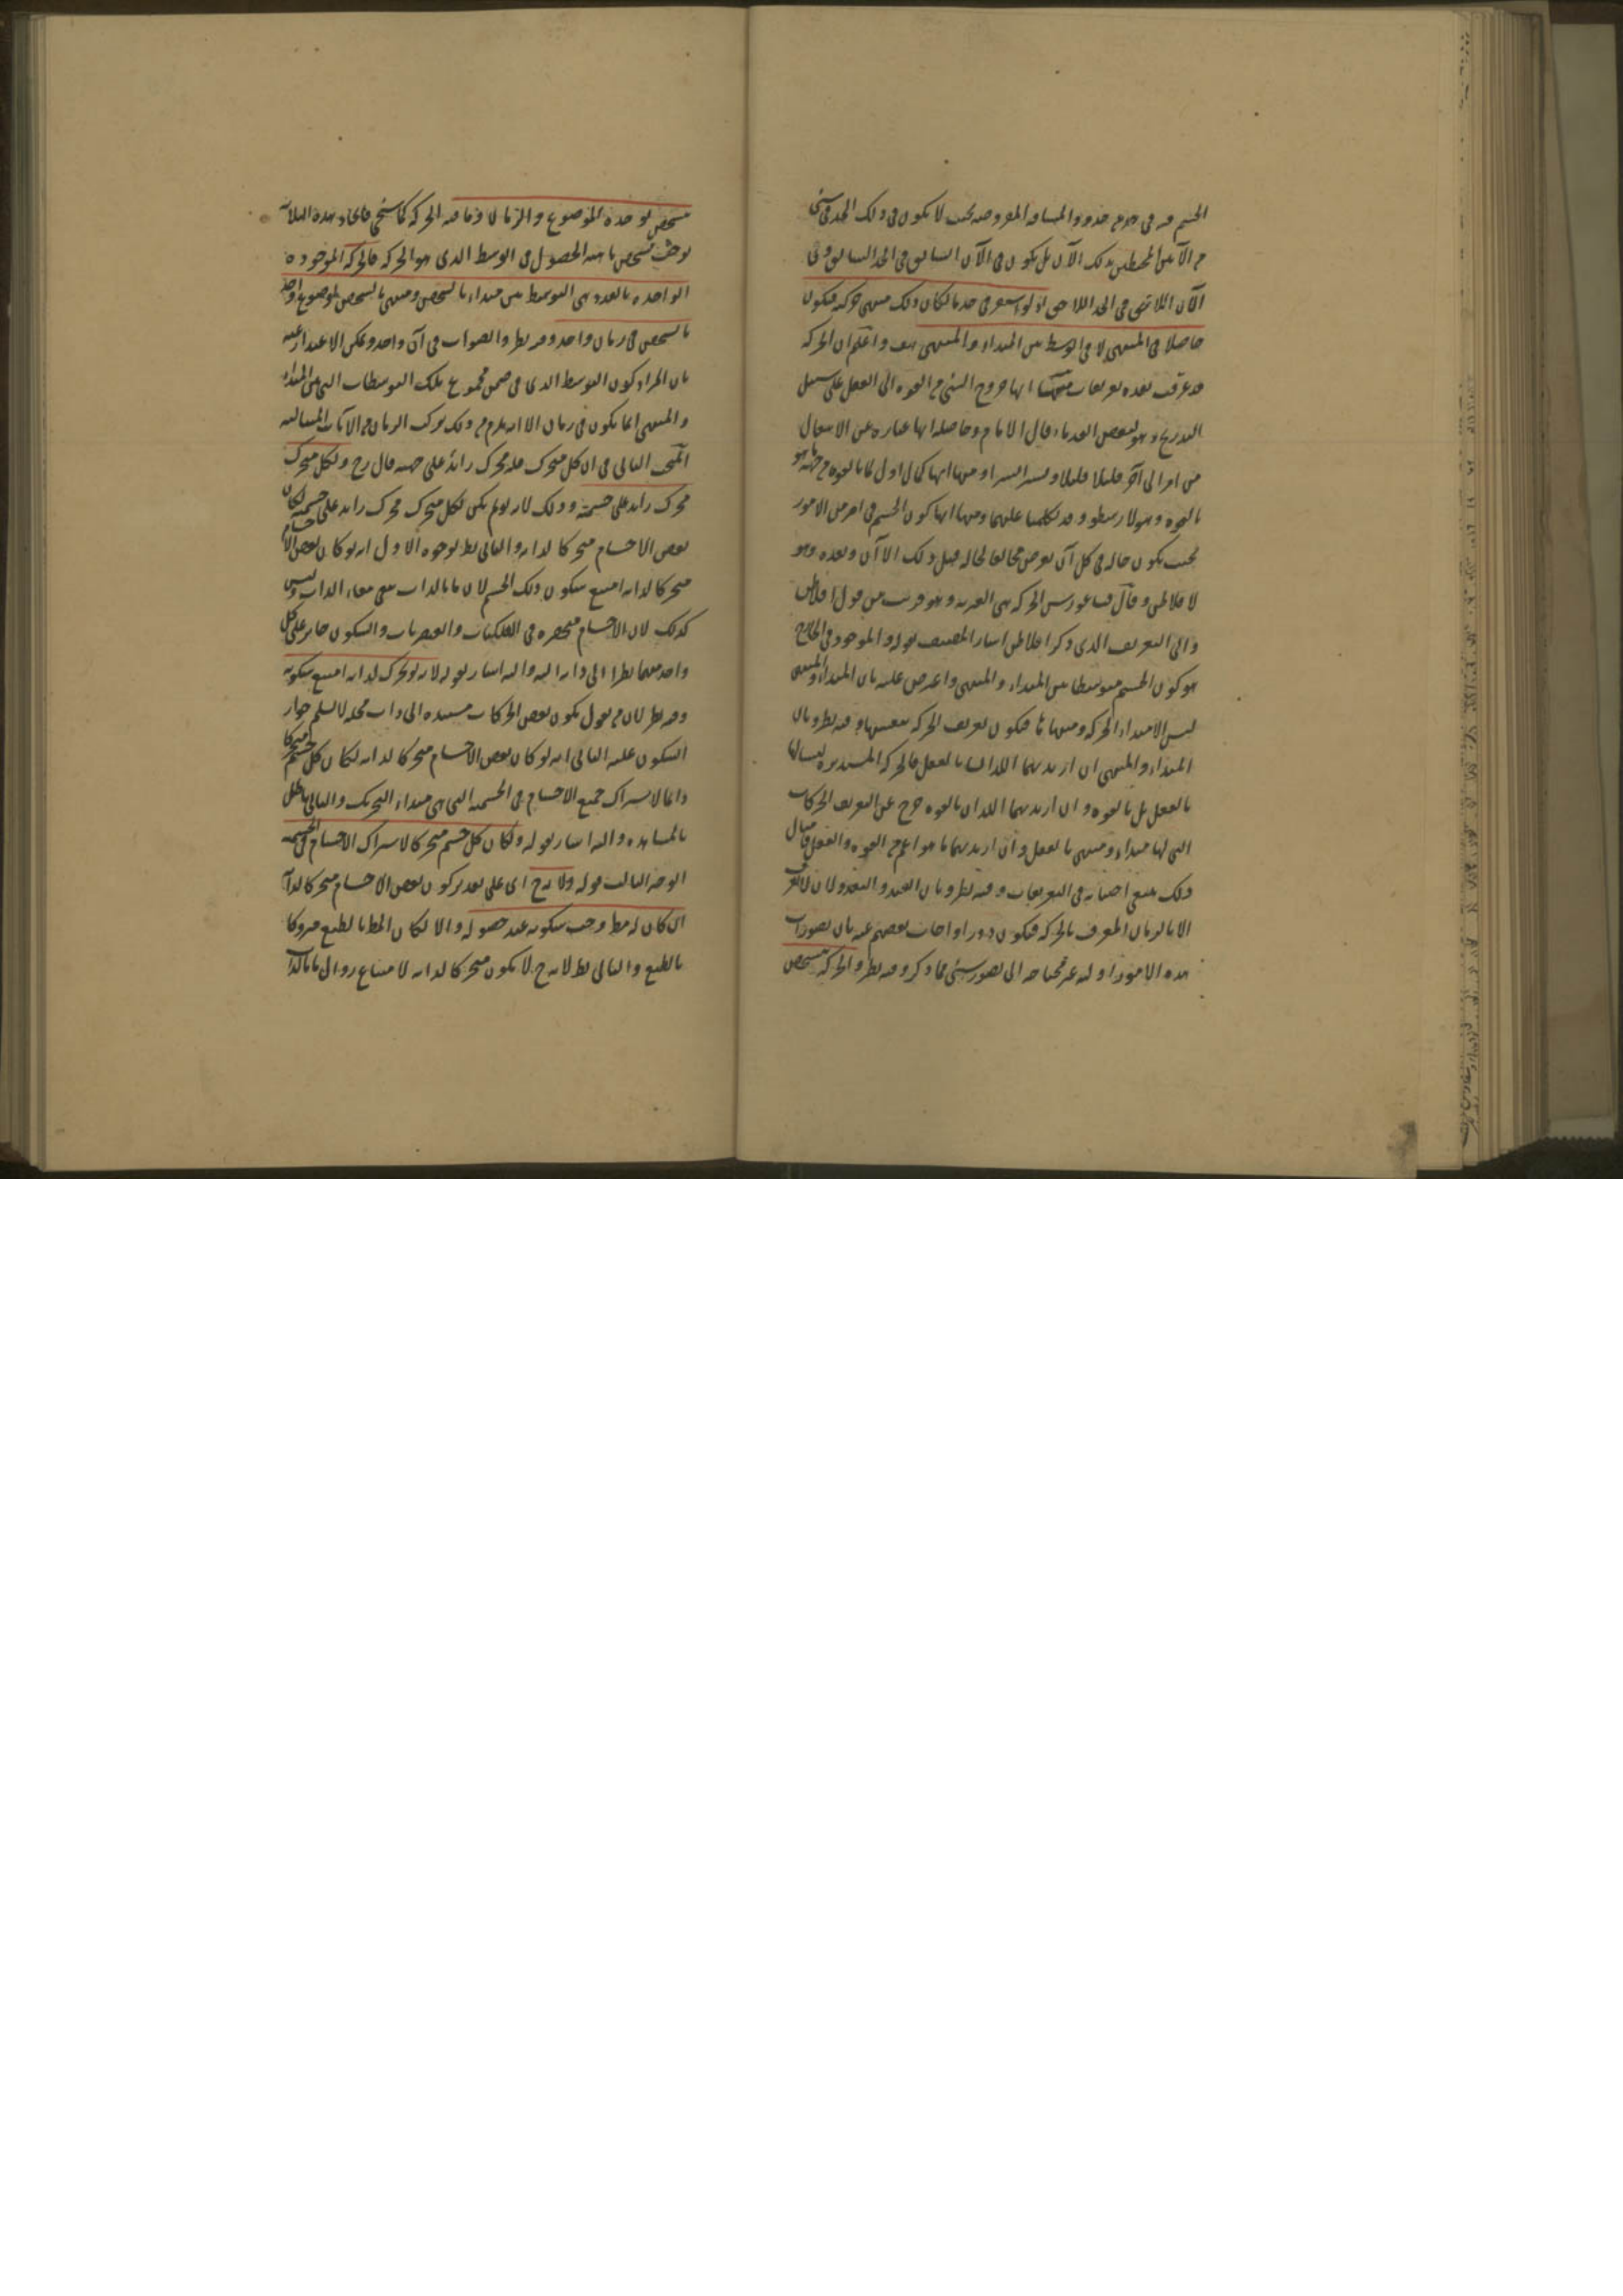 الجسم فيه في حد من حدود المسافة المفروضة بحيث لا يكون في ذلك الحد في شيء
من الآنين المحيطين بذلك الآن بل يكون في الآن السابق في الحد السابق وفي
الآن اللاحق في الحد اللاحق اذ لو استقر في حد ما لكان ذلك منتهى حركته فيكون
حاصلا في المنتهى لا في الوسط بين المبداء والمنتهى هف واعلم ان الحركة
قد عرفت بعدة تعريفات منها انها خروج الشيء من القوة الى الفعل على سبيل
التدريج وهو لبعض القدماء قال الامام وحاصله انها عبارة عن الانتقال
من امر الى آخر قليلا قليلا ويسيرا يسيرا ومنها انها كمال اول لما بالقوة من جهة ما هو
بالقوة وهو لارسطو وقد تكلمنا عليهما ومنها انها كون الجسم في امر من الامور
بحيث يكون حاله في كل آن يفرض مخالفا لحاله قبل ذلك الآن وبعده وهو
لافلاطن وقال فيثاغورس الحركة هي الغيرية وهو قريب من قول افلاطن
والى التعريف الذي ذكر افلاطن اشار المصنف بقوله والموجود في الخارج
هو كون الجسم متوسطا بين المبداء والمنتهى واعترض عليه بان المبداء والمنتهى
ليس الا مبداء الحركة ومنتهاها فيكون تعريف الحركة بنفسها وفيه نظر وبان
المبداء والمنتهى ان اريد بهما اللذان بالفعل فالحركة المستديرة ليسا لها
بالفعل بل بالقوة وان اريد بهما اللذان بالقوة خرج عن التعريف الحركات
التي لها مبداء ومنتهى بالفعل وان اريد بهما ما هو اعم من القوة والفعل فمثال
ذلك ينبغي اجتنابه في التعريفات وفيه نظر وبان القبل والبعد لا يعرف
الا بالزمان المعرف بالحركة فيكون دورا واجاب بعضهم عنه بان تصورات
هذه الامور اولية غير محتاجة الى تصور شيء مما ذكر وفيه نظر والحركة تتشخص
تتشخص بوحدة الموضوع والزمان وما فيه الحركة كما سيجيء فاتحاد هذه الثلاثة
يوجب تشخص ما هية الحصول في الوسط الذي هو الحركة فالحركة الموجودة
الواحدة بالعدد هي التوسط بين مبداء بالشخص ومنتهى بالشخص لموضوع واحد
بالشخص في زمان واحد وفيه نظر والصواب في آن واحد ويمكن الاعتذار عنه
بان المراد كون التوسط الذي في ضمن مجموع تلك التوسطات التي بين المبداء
والمنتهى انما يكون في زمان الا انه يلزم من ذلك تركب الزمان من الآنات المتتالية
البحث الثاني في ان كل متحرك فله محرك زائد على جسميته قال رح ولكل متحرك
محرك زائد على جسميته وذلك لانه لو لم يكن لكل متحرك محرك زائد على جسميته لكان
بعض الاجسام متحركا لذاته والتالي بط بوجوه الاول انه لو كان بعض الاجسام
متحركا لذاته امتنع سكون ذلك الجسم لان ما بالذات يبقى ببقاء الذات وليس
كذلك لان الاجسام منحصرة في الفلكيات والعنصريات والسكون جائز على كل
واحد منهما نظرا الى ذاته اليه واليه اشار بقوله لانه لو تحرك لذاته امتنع سكونه
وفيه نظر لان من يقول بكون بعض الحركات مستندة الى ذات محله لا يسلم جواز
السكون عليه الثاني انه لو كان بعض الاجسام متحركا لذاته لكان كل جسم متحركا
دائما لاشتراك جميع الاجسام في الجسمية التي هي مبداء التحريك والتالي باطل
بالمشاهدة واليه اشار بقوله ولكان كل جسم متحركا لاشتراك الاجسام في الجسمية
الوجه الثالث قوله ولانه ح اي على تقدير كون بعض الاجسام متحركا لذاته
ان كان له مط وجب سكونه عند حصوله والا لكان المط بالطبع متروكا
بالطبع والتالي بط لانه ح لا يكون متحركا لذاته لامتناع زوال ما بالذات